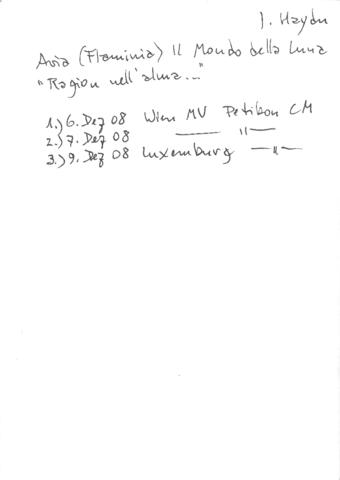 J. Haydn
Aria (Flaminia) Il Mondo della Luna
"Ragion nell'alma..."
1.) 6. Dez 08 Wien MV Petibon CM
2.) 7. Dez 08 —— " ——
3.) 9. Dez 08 Luxemburg —— " ——